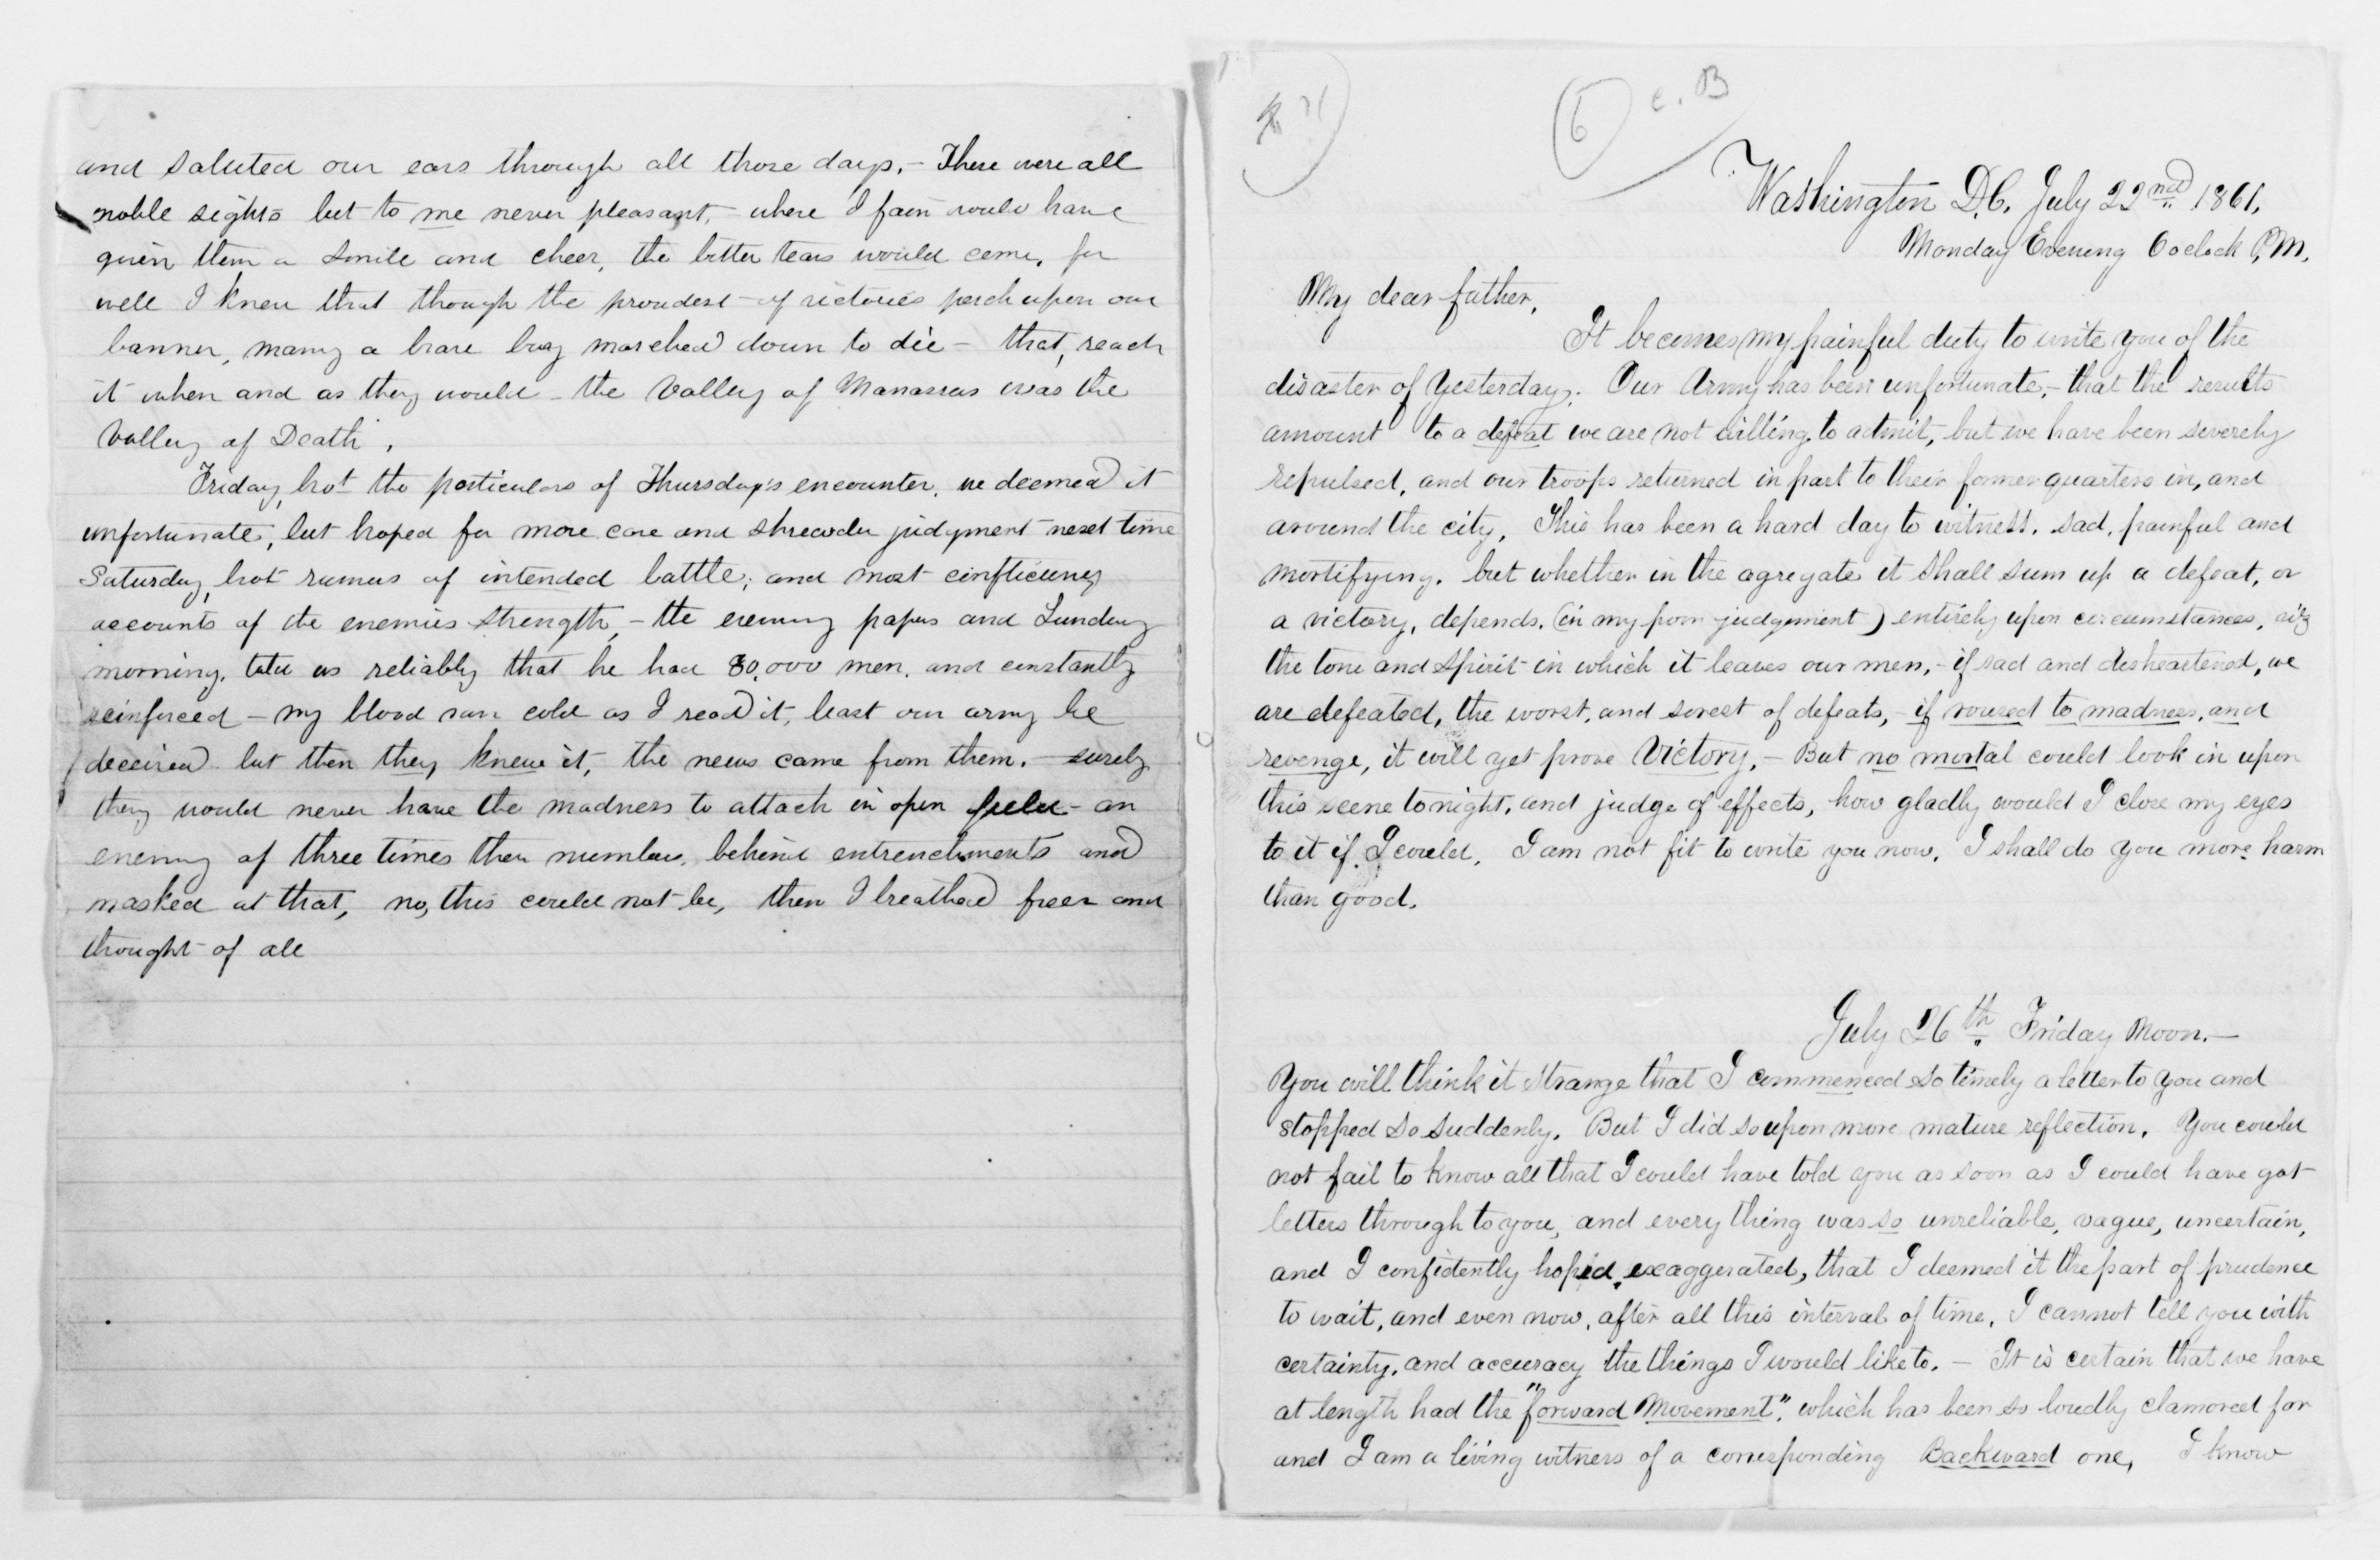 and saluted our ears through all those days, - These were all
noble sights but to me never pleasant, - where I fain would have
given them a smile and cheer, the bitter tears would come, for
well I knew that though the proudest of victories perch upon our
banner, many a brave boy marched down to die - that, reach
it when and as they would - the Valley of Manassas was the
Valley of Death.
Friday, brot the particulars of Thursday's encounter, we deemed it
unfortunate, but hoped for more care and shrewder judgment next time
Saturday, brot rumors of intended battle; and most conflicting
accounts of the enemies strength, - the evening papers and Sunday
morning, told us reliably that he had 80,000 men, and constantly
reinforced - my blood ran cold as I read it, least our army be
deceived but then they knew it, the news came from them. - surely
they would never have the madness to attack in open field - an
enemy of three times their number, behind entrenchments and
masked at that, no, this could not be, then I breathed freer and
thought of all
6 c. B
Washington D.C. July 22nd 1861.
Monday Evening 6 oclock P.M.
My dear father,
It becomes my painful duty to write you of the
disaster of Yesterday. Our Army has been unfortunate, - that the results
amount to a defeat we are not willing to admit, but we have been severely
repulsed, and our troops returned in part to their former quarters in, and
around the city. This has been a hard day to witness, sad, painful and
mortifying, but whether in the agregate it shall sum up a defeat, or
a victory, depends, (in my poor judgement) entirely upon circumstances, viz
the tone and spirit in which it leaves our men, - if sad and disheartened, we
are defeated, the worst, and sorest of defeats, - if roused to madness, and
revenge, it will yet prove Victory. - But no mortal could look in upon
this scene tonight, and judge of effects, how gladly would I close my eyes
to it if I could. I am not fit to write you now, I shall do you more harm
than good.
July 26th Friday Noon. -
You will think it strange that I commenced so timely a letter to you and
stopped so suddenly. But I did so upon more mature reflection. You could
not fail to know all that I could have told you as soon as I could have got
letters through to you, and every thing was so unreliable, vague, uncertain,
and I confidently hoped exaggerated, that I deemed it the part of prudence
to wait, and even now, after all this interval of time, I cannot tell you with
certainty, and accuracy the things I would like to. - It is certain that we have
at length had the "forward Movement", which has been so loudly clamored for
and I am a living witness of a corresponding Backward one, I know